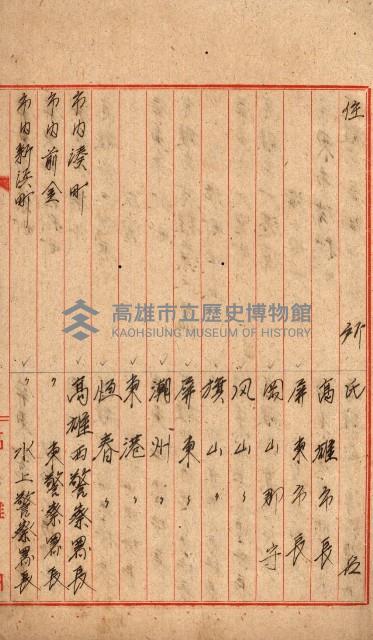 住所 氏名
高雄市長
屏東市長
岡山郡守
凤山〃
旗山〃
屏東〃
潮州〃
東港〃
恒春〃
市内湊町 高雄西警察署長
市内前金 〃東警察署長
市内新浜町 〃水上警察署長
高雄市立歷史博物館
KAOHSIUNG MUSEUM OF HISTORY